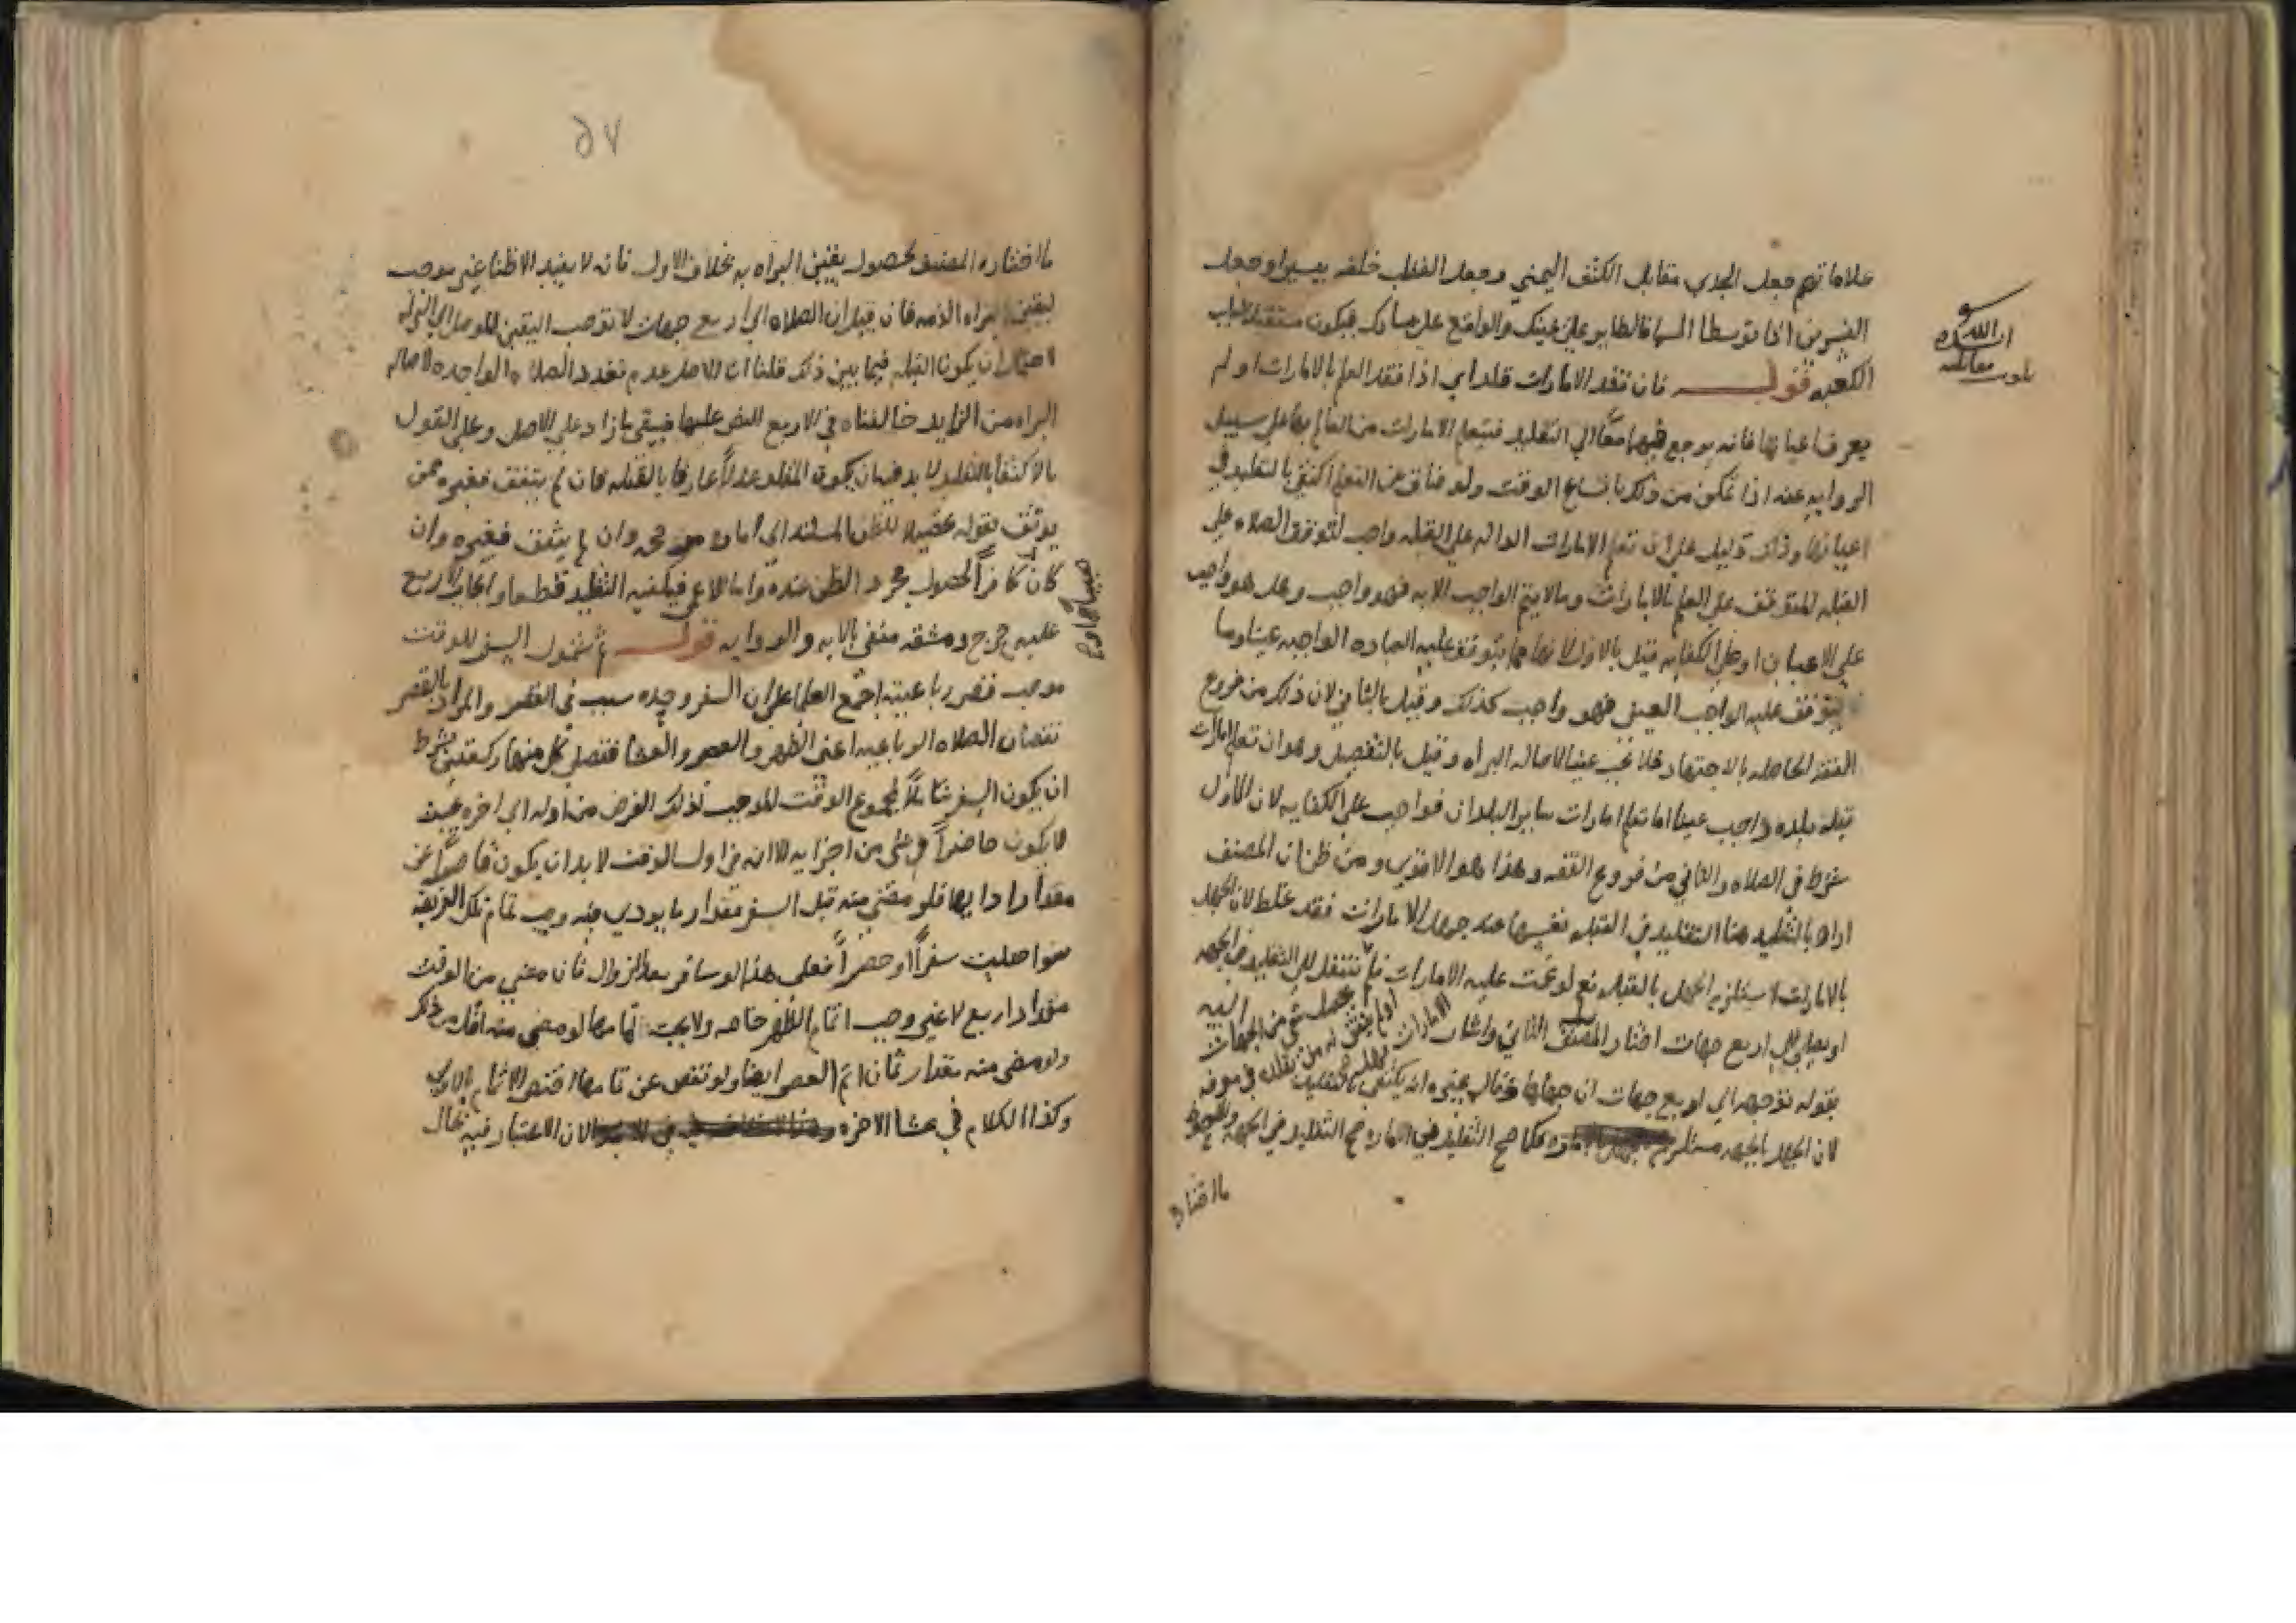 علاماتهم جعل الجدي مقابل الكتف اليمني وجعل القطب خلفه يسيرا وجعل
النسرين اذا توسطا السما فالطاير علي يمينك والواقع علي يسارك فيكون مستقبلا لباب
الكعبه قوله فان فقد الامارات قلد اي اذا فقد العلم بالامارات او لم
يعرف اعيانها فانه يرجع فيهما معًا الي التقليد فيتعلم الامارات من العالم بها علي سبيل
الروايه عنه اذا تمكن من ذلك باتساع الوقت ولو ضاق عن التعلم اكتفي بالتقليد في
اعيانها وذلك دليل علي ان تعلم الامارات الداله علي القبله واجب لتوقف الصلاه علي
القبله المتوقف علي العلم بالامارات وما لا يتم الواجب الا به فهو واجب وهل هو واجب
علي الاعيان او علي الكفايه قيل بالاول لانها مما يتوقف عليه العباده الواجبه عينا وما
يتوقف عليه الواجب العيني فهو واجب كذلك وقيل بالثاني لان ذلك من فروع
الفقه الحاصله بالاجتهاد فلا يجب عينا لاصاله البراه وقيل بالتفصيل وهو ان تعلم امارات
قبله بلده واجب عينا اما تعلم امارات ساير البلدان فواجب علي الكفايه لان الاول
شرط في الصلاه والثاني من فروع الفقه وهذا هو الاقوي ومن ظن ان المصنف
اراد بالتقليد هنا التقليد في القبله نفسها عند جهل الامارات فقد غلط لان الجهل
بالامارات لا يستلزم الجهل بالقبله نعم لو عميت عليه الامارات فلم ينتقل الي التقليد في الجهه
او يصلي الي اربع جهات اختار المصنف الثاني واشار اليه
بقوله توجه الي اربع جهات ان جهلها وقال غيره انه يكتفي بالتقليد
لان الجهل بالجهه مستلزم فكما صح التقليد في الاماره صح التقليد في الجهه
ما اختاره
بلغت مقابله
ايده الله
٥٧
ما اختاره المصنف لحصول يقين البراه به بخلاف الاول فانه لا يفيد الا ظنا غير موجب
ليقين براه الذمه فان قيل ان الصلاه الي اربع جهات لا توجب اليقين الموصل الي البراه
لاحتمال ان يكون القبله فيما بين ذلك قلنا ان الاصل عدم تعدد الصلاه الواحده لاصاله
البراه من الزايد خالفناه في الاربع للنص عليها فيبقي ما زاد علي الاصل وعلي القول
بالاكتفا بالتقليد لا بد فيه ان يكون المقلد عدلاً عارفا بالقبله فان لم يتفق فغيره ممن
يوثق بقوله تحصيلا للظن المستند الي اماره وان لم يتفق فغيره وان
كان كافراً لحصول مجرد الظن عنده واما الاعمي فيكفيه التقليد قطعا وايجاب الاربع
عليه حرج ومشقه منفي بالايه والروايه قوله ثم شمول السفر للوقت
موجب قصر رباعيته اجمع العلما علي ان السفر وحده سبب في القصر والمراد بالقصر
نقصان الصلاه الرباعيه اعني الظهر والعصر والعشا فتصلي كل منها ركعتين بشرط
ان يكون السفر شاملاً لمجموع الوقت الموجب لذلك الفرض من اوله الي اخره بحيث
لا يكون حاضراً في شي من اجزايه الا انه من اول الوقت لا بد ان يكون قاصراً عن
مقدار ادايها فلو مضي منه قبل السفر مقدار ما يودي فيه وجب تمام تلك الفريضه
سواء صليت سفراً او حضراً فعلي هذا لو سافر بعد الزوال فان مضي من الوقت
مقدار اربع لا غير وجب اتمام الظهر خاصه ولا يجب اتمامها لو مضي منه اقل من ذلك
ولو مضي منه مقدار ثمان اتم العصر ايضا ولو نقص عن تمامها اختص الاتمام بالاولي
وكذا الكلام في عشا الاخره لان الاعتبار فيه بحال